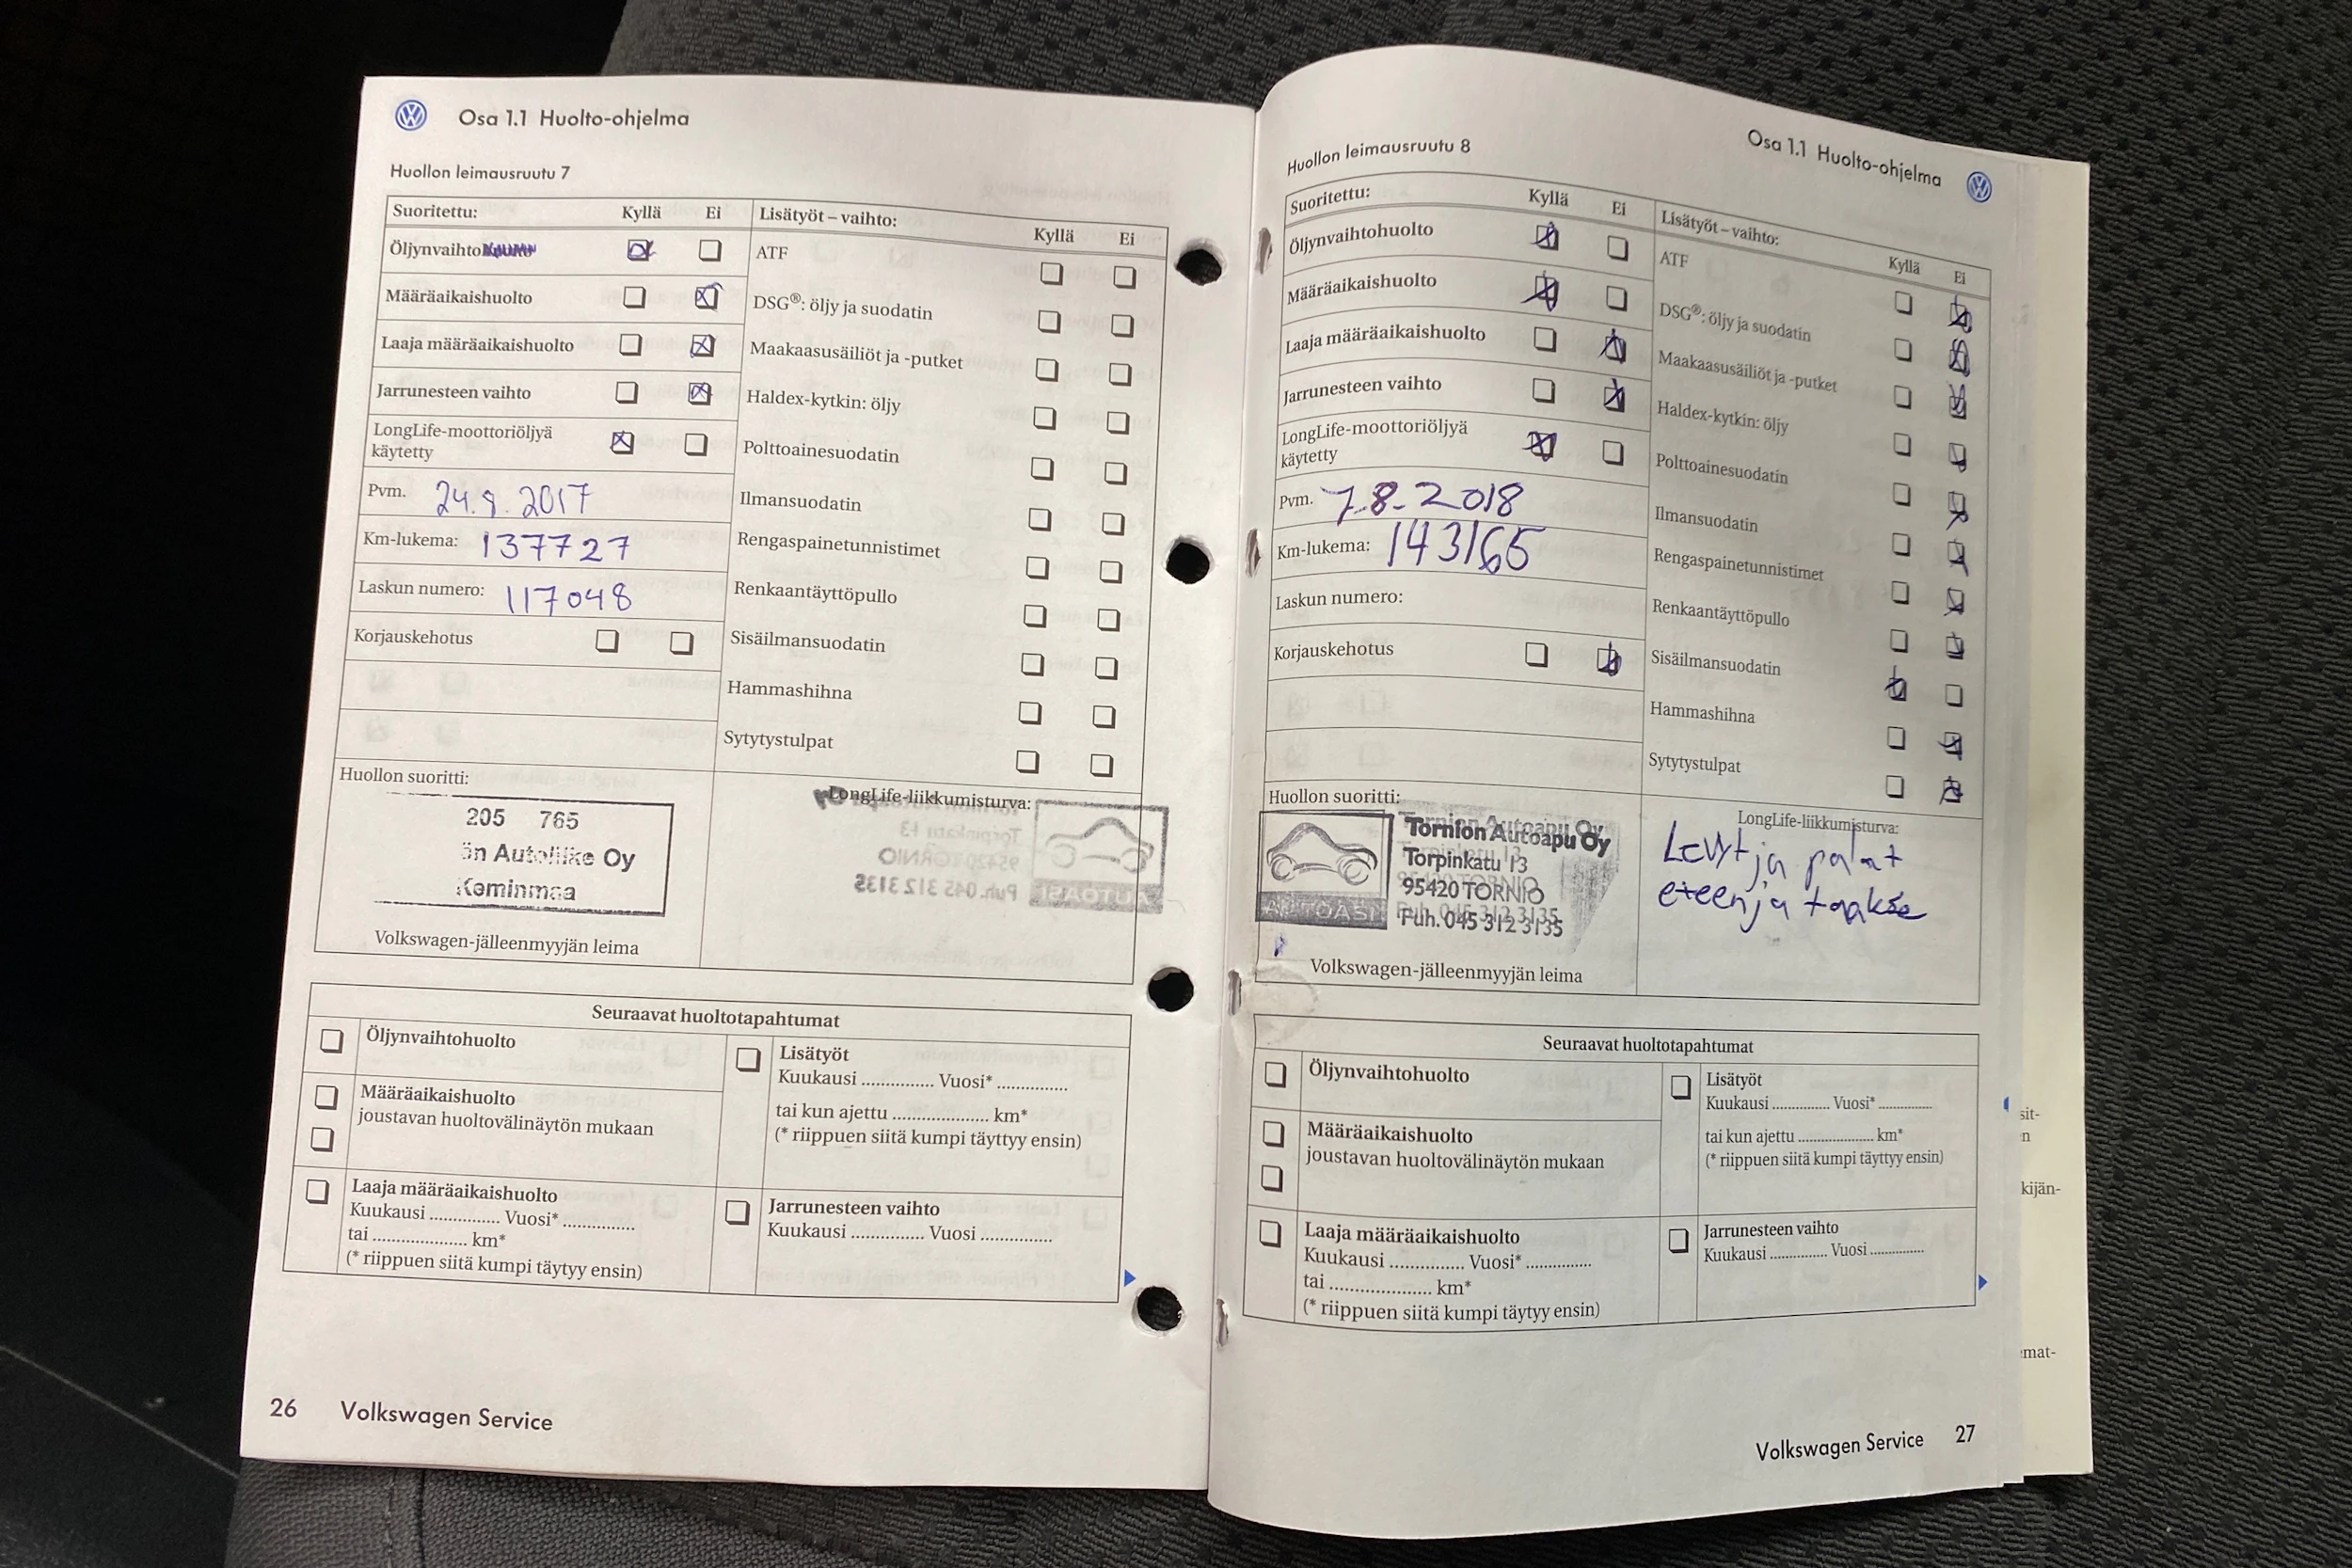 Osa 1.1 Huolto-ohjelma
Huollon leimausruutu 7
Suoritettu: Kyllä Ei
Öljynvaihto
Määräaikaishuolto
Laaja määräaikaishuolto
Jarrunesteen vaihto
LongLife-moottoriöljyä
käytetty
Pvm. 24.9.2017
Km-lukema: 137727
Laskun numero: 117048
Korjauskehotus
Lisätyöt – vaihto: Kyllä Ei
ATF
DSG®: öljy ja suodatin
Maakaasusäiliöt ja -putket
Haldex-kytkin: öljy
Polttoainesuodatin
Ilmansuodatin
Rengaspainetunnistimet
Renkaantäyttöpullo
Sisäilmansuodatin
Hammashihna
Sytytystulpat
Huollon suoritti:
205 765
än Autoliike Oy
Keminmaa
Volkswagen-jälleenmyyjän leima
LongLife-liikkumisturva:
Seuraavat huoltotapahtumat
Öljynvaihtohuolto
Määräaikaishuolto
joustavan huoltovälinäytön mukaan
Laaja määräaikaishuolto
Kuukausi ............... Vuosi* ...............
tai .................... km*
(* riippuen siitä kumpi täytyy ensin)
Lisätyöt
Kuukausi ............... Vuosi* ...............
tai kun ajettu .................... km*
(* riippuen siitä kumpi täyttyy ensin)
Jarrunesteen vaihto
Kuukausi ............... Vuosi ...............
26 Volkswagen Service
Osa 1.1 Huolto-ohjelma
Huollon leimausruutu 8
Suoritettu: Kyllä Ei
Öljynvaihtohuolto
Määräaikaishuolto
Laaja määräaikaishuolto
Jarrunesteen vaihto
LongLife-moottoriöljyä
käytetty
Pvm. 7.8.2018
Km-lukema: 143165
Laskun numero:
Korjauskehotus
Lisätyöt – vaihto: Kyllä Ei
ATF
DSG®: öljy ja suodatin
Maakaasusäiliöt ja -putket
Haldex-kytkin: öljy
Polttoainesuodatin
Ilmansuodatin
Rengaspainetunnistimet
Renkaantäyttöpullo
Sisäilmansuodatin
Hammashihna
Sytytystulpat
Huollon suoritti:
AUTOASI
Tornion Autoapu Oy
Torpinkatu 13
95420 TORNIO
Puh. 045 312 3135
Volkswagen-jälleenmyyjän leima
LongLife-liikkumisturva:
Levyt ja palat
eteen ja taakse
Seuraavat huoltotapahtumat
Öljynvaihtohuolto
Määräaikaishuolto
joustavan huoltovälinäytön mukaan
Laaja määräaikaishuolto
Kuukausi ............... Vuosi* ...............
tai .................... km*
(* riippuen siitä kumpi täytyy ensin)
Lisätyöt
Kuukausi ............... Vuosi* ...............
tai kun ajettu .................... km*
(* riippuen siitä kumpi täyttyy ensin)
Jarrunesteen vaihto
Kuukausi ............... Vuosi ...............
Volkswagen Service 27
sit-
n
kijän-
mat-